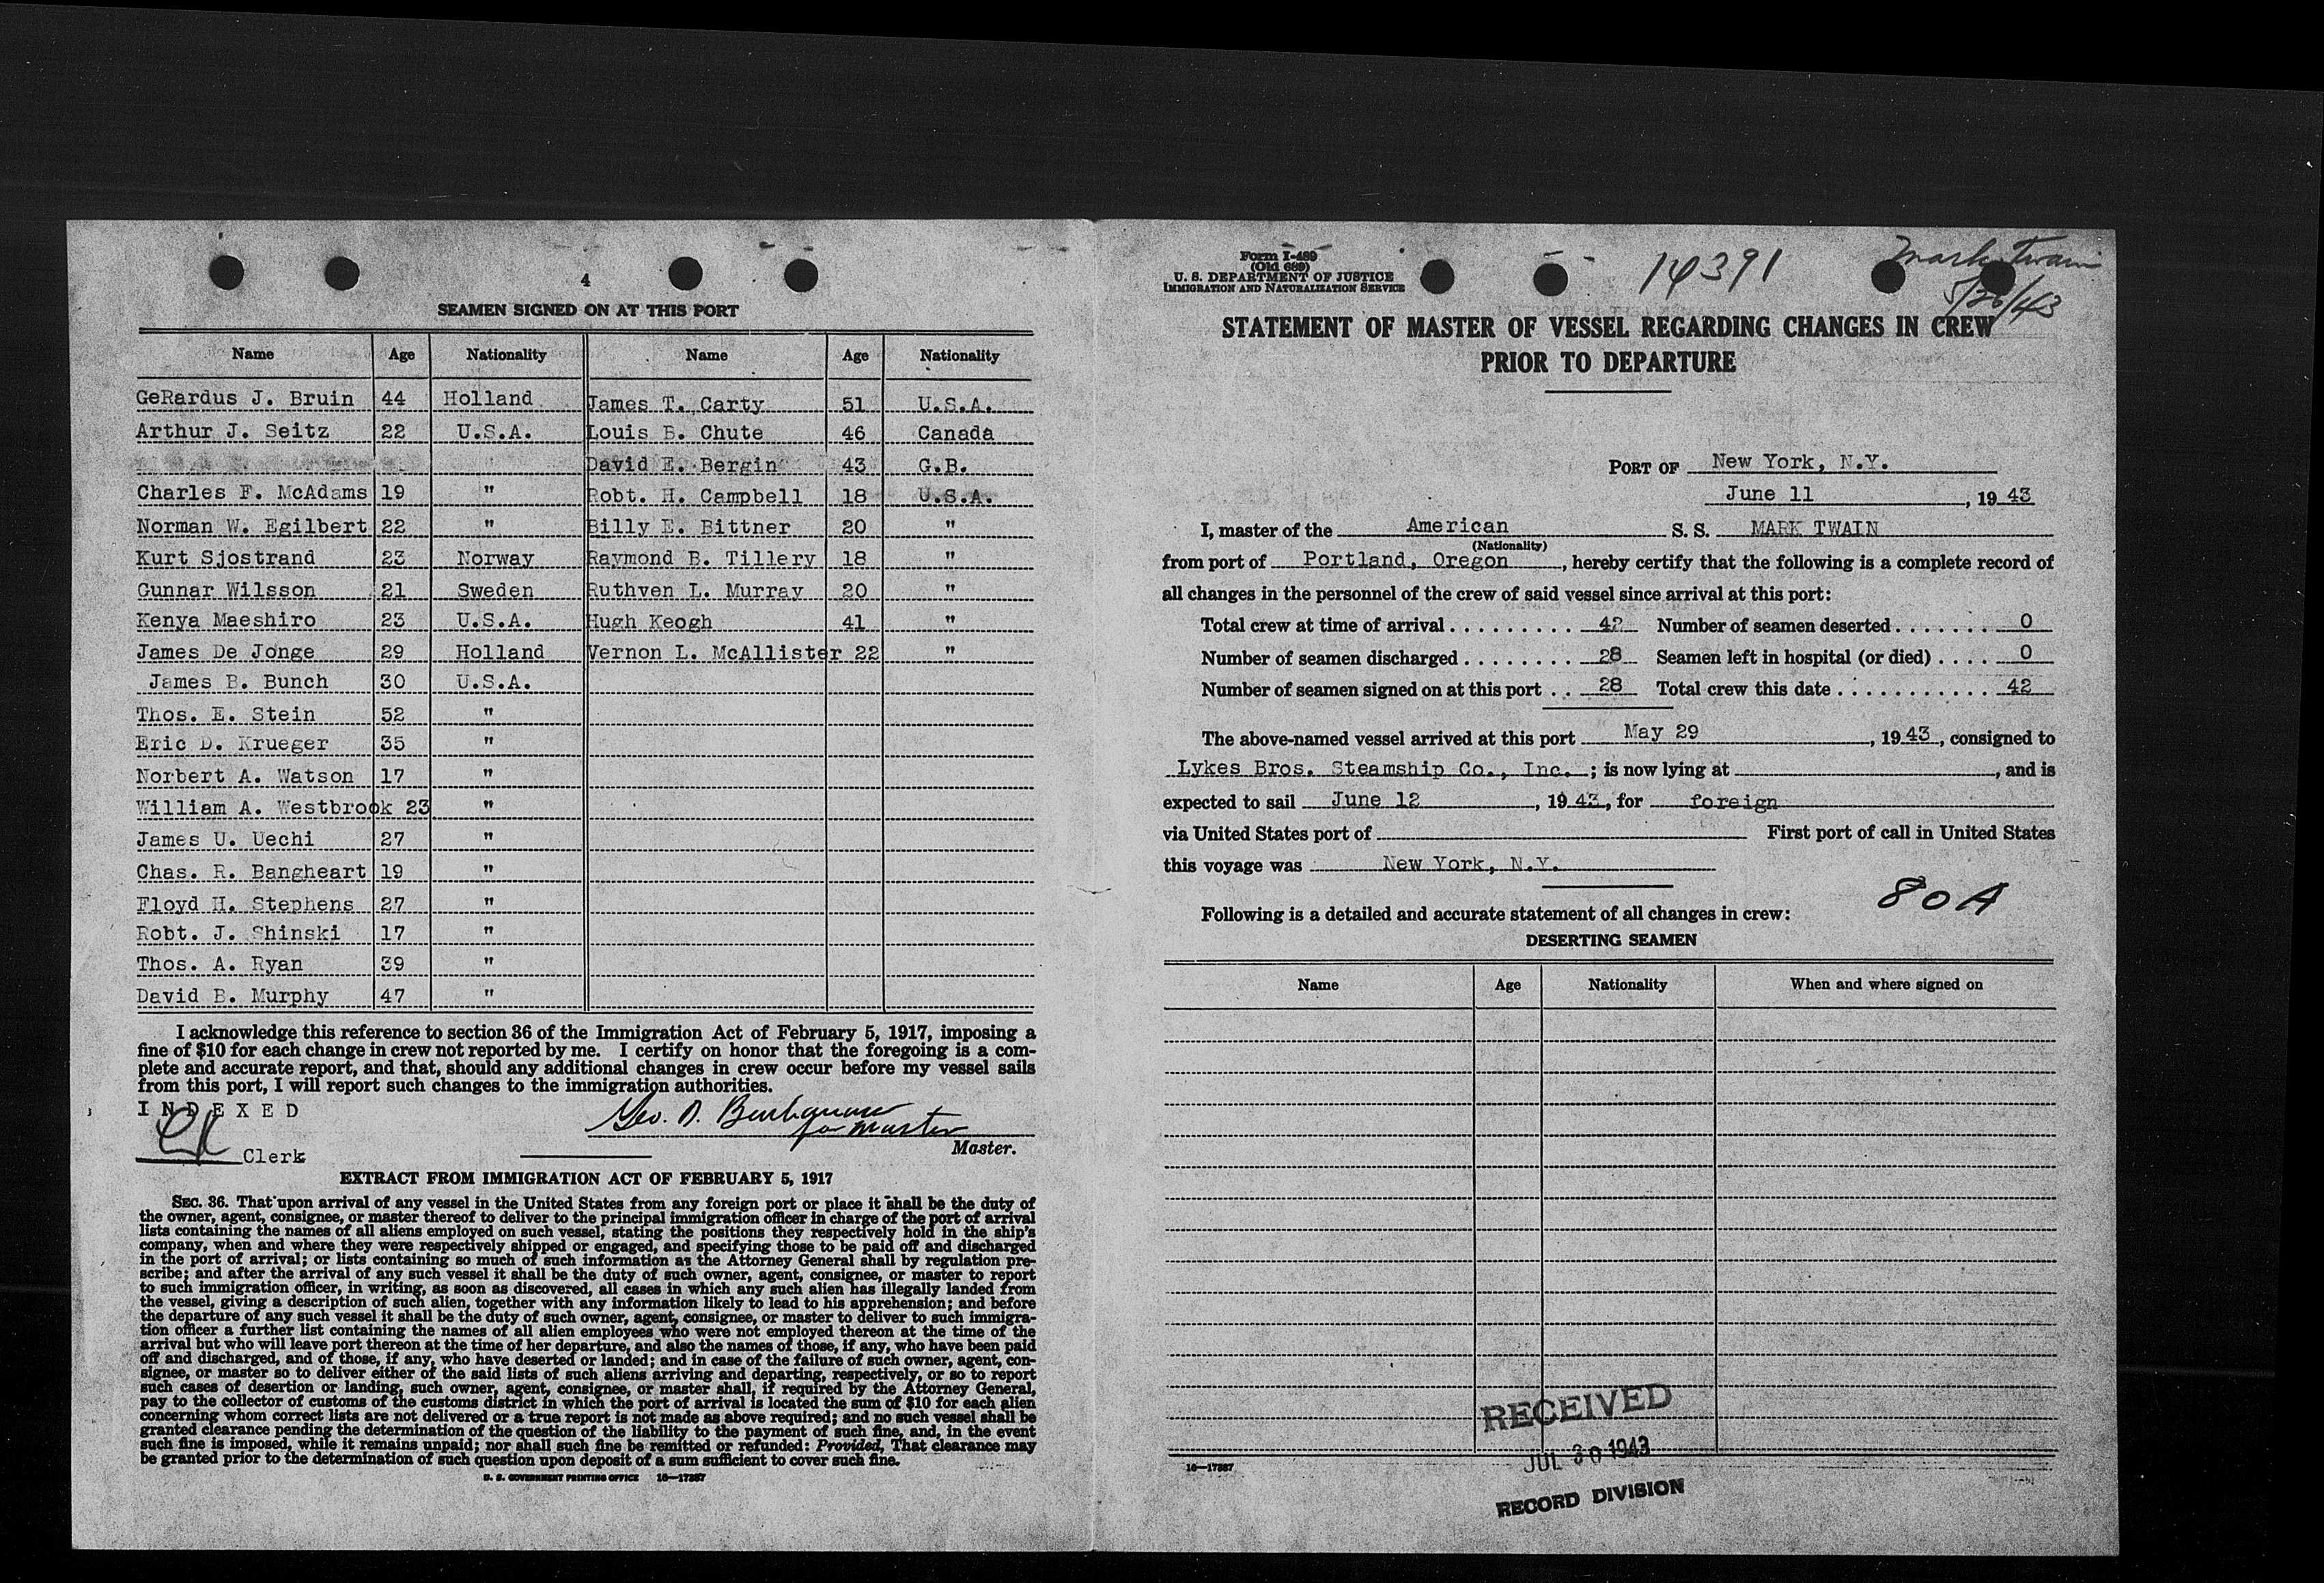 4
SEAMEN SIGNED ON AT THIS PORT
Name Age Nationality Name Age Nationality
GeRardus J. Bruin 44 Holland James T. Carty 51 U.S.A.
Arthur J. Seitz 22 U.S.A. Louis B. Chute 46 Canada
David E. Bergin 43 G.B.
Charles F. McAdams 19 " Robt. H. Campbell 18 U.S.A.
Norman W. Egilbert 22 " Billy E. Bittner 20 "
Kurt Sjostrand 23 Norway Raymond B. Tillery 18 "
Gunnar Wilsson 21 Sweden Ruthven L. Murray 20 "
Kenya Maeshiro 23 U.S.A. Hugh Keogh 41 "
James De Jonge 29 Holland Vernon L. McAllister 22 "
James B. Bunch 30 U.S.A.
Thos. E. Stein 52 "
Eric D. Krueger 35 "
Norbert A. Watson 17 "
William A. Westbrook 23 "
James U. Uechi 27 "
Chas. R. Bangheart 19 "
Floyd H. Stephens 27 "
Robt. J. Shinski 17 "
Thos. A. Ryan 39 "
David B. Murphy 47 "
I acknowledge this reference to section 36 of the Immigration Act of February 5, 1917, imposing a
fine of $10 for each change in crew not reported by me. I certify on honor that the foregoing is a com-
plete and accurate report, and that, should any additional changes in crew occur before my vessel sails
from this port, I will report such changes to the immigration authorities.
INDEXED
Geo. D.
for Master
Master.
Clerk
EXTRACT FROM IMMIGRATION ACT OF FEBRUARY 5, 1917
SEC. 36. That upon arrival of any vessel in the United States from any foreign port or place it shall be the duty of
the owner, agent, consignee, or master thereof to deliver to the principal immigration officer in charge of the port of arrival
lists containing the names of all aliens employed on such vessel, stating the positions they respectively hold in the ship's
company, when and where they were respectively shipped or engaged, and specifying those to be paid off and discharged
in the port of arrival; or lists containing so much of such information as the Attorney General shall by regulation pre-
scribe; and after the arrival of any such vessel it shall be the duty of such owner, agent, consignee, or master to report
to such immigration officer, in writing, as soon as discovered, all cases in which any such alien has illegally landed from
the vessel, giving a description of such alien, together with any information likely to lead to his apprehension; and before
the departure of any such vessel it shall be the duty of such owner, agent, consignee, or master to deliver to such immigra-
tion officer a further list containing the names of all alien employees who were not employed thereon at the time of the
arrival but who will leave port thereon at the time of her departure, and also the names of those, if any, who have been paid
off and discharged, and of those, if any, who have deserted or landed; and in case of the failure of such owner, agent, con-
signee, or master so to deliver either of the said lists of such aliens arriving and departing, respectively, or so to report
such cases of desertion or landing, such owner, agent, consignee, or master shall, if required by the Attorney General,
pay to the collector of customs of the customs district in which the port of arrival is located the sum of $10 for each alien
concerning whom correct lists are not delivered or a true report is not made as above required; and no such vessel shall be
granted clearance pending the determination of the question of the liability to the payment of such fine, and, in the event
such fine is imposed, while it remains unpaid; nor shall such fine be remitted or refunded: Provided, That clearance may
be granted prior to the determination of such question upon deposit of a sum sufficient to cover such fine.
U. S. GOVERNMENT PRINTING OFFICE 16—17387
Form I-489
(Old 689)
U. S. DEPARTMENT OF JUSTICE
IMMIGRATION AND NATURALIZATION SERVICE
14391
Mark Twain
5/26/43
STATEMENT OF MASTER OF VESSEL REGARDING CHANGES IN CREW
PRIOR TO DEPARTURE
PORT OF New York, N.Y.
June 11, 1943
I, master of the American S. S. MARK TWAIN
(Nationality)
from port of Portland, Oregon, hereby certify that the following is a complete record of
all changes in the personnel of the crew of said vessel since arrival at this port:
Total crew at time of arrival 42 Number of seamen deserted 0
Number of seamen discharged 28 Seamen left in hospital (or died) 0
Number of seamen signed on at this port 28 Total crew this date 42
The above-named vessel arrived at this port May 29, 1943, consigned to
Lykes Bros. Steamship Co., Inc.; is now lying at , and is
expected to sail June 12, 1943, for foreign
via United States port of First port of call in United States
this voyage was New York, N.Y.
80A
Following is a detailed and accurate statement of all changes in crew:
DESERTING SEAMEN
Name Age Nationality When and where signed on
RECEIVED
JUL 30 1943
RECORD DIVISION
16—17387